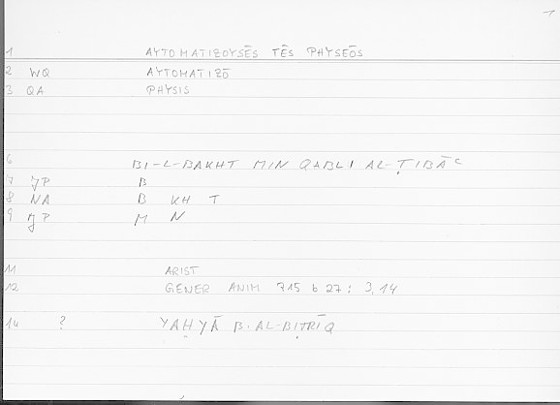 1
1 AYTOMATIZOYSĒS TĒS PHYSEŌS
2 WQ AYTOMATIZŌ
3 QA PHYSIS
6 BI-L-BAKHT MIN QABLI AL-ṬIBĀC
7 JP B
8 NA B KH T
9 JP M N
11 ARIST
12 GENER ANIM 715 b 27 : 3,14
14 ? YAḤYĀ B. AL-BIṬRĪQ